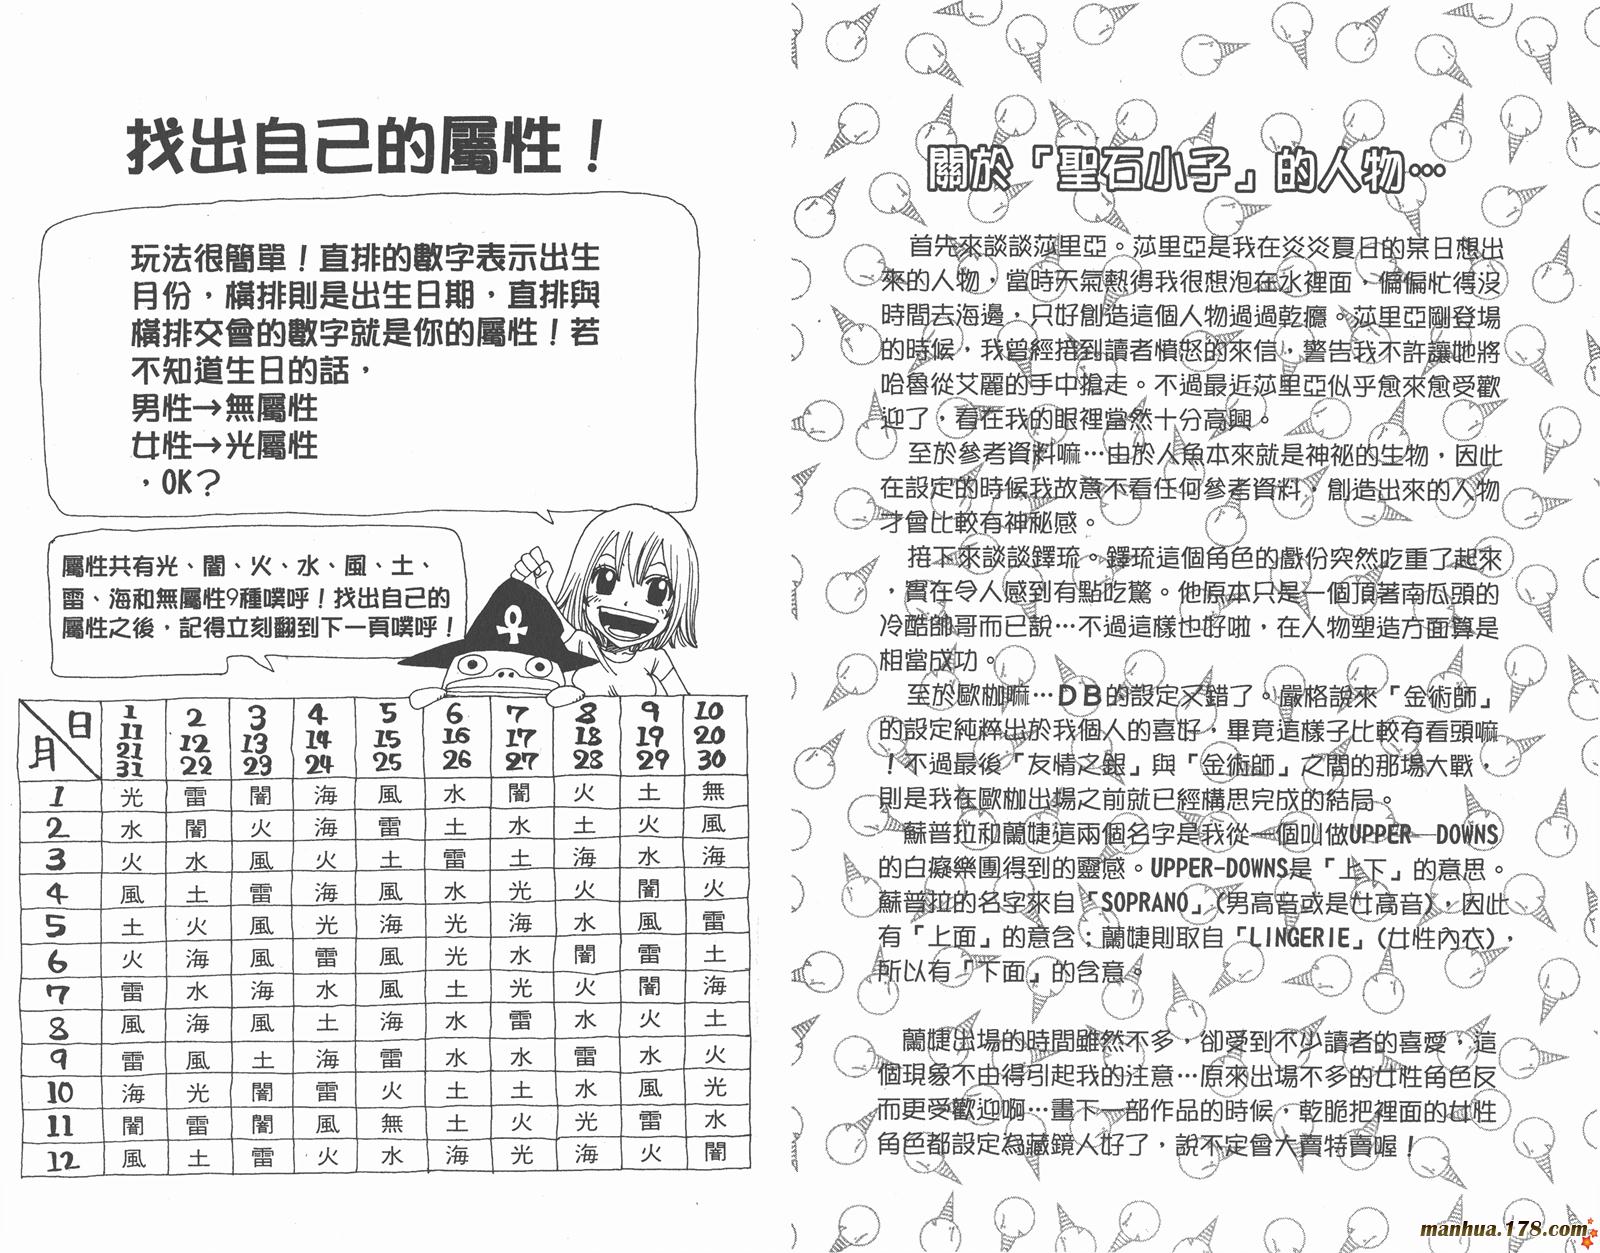 找出自己的屬性！
玩法很簡單！直排的數字表示出生
月份，橫排則是出生日期，直排與
橫排交會的數字就是你的屬性！若
不知道生日的話，
男性→無屬性
女性→光屬性
，OK？
屬性共有光、闇、火、水、風、土、
雷、海和無屬性9種噗呼！找出自己的
屬性之後，記得立刻翻到下一頁噗呼！
日 1 2 3 4 5 6 7 8 9 10
11 12 13 14 15 16 17 18 19 20
月 21 22 23 24 25 26 27 28 29 30
31
1 光 雷 闇 海 風 水 闇 火 土 無
2 水 闇 火 海 雷 土 水 土 火 風
3 火 水 風 火 土 雷 土 海 水 海
4 風 土 雷 海 風 水 光 火 闇 火
5 土 火 風 光 海 光 海 水 風 雷
6 火 海 風 雷 風 光 水 闇 雷 土
7 雷 水 海 水 風 土 光 火 闇 海
8 風 海 風 土 海 水 雷 水 火 土
9 雷 風 土 海 雷 水 水 雷 水 火
10 海 光 闇 雷 火 土 土 水 風 光
11 闇 雷 闇 風 無 土 火 光 雷 水
12 風 土 雷 火 水 海 光 海 火 闇
關於「聖石小子」的人物…
首先來談談莎里亞。莎里亞是我在炎炎夏日的某日想出
來的人物，當時天氣熱得我很想泡在水裡面，偏偏忙得沒
時間去海邊，只好創造這個人物過過乾癮。莎里亞剛登場
的時候，我曾經接到讀者憤怒的來信，警告我不許讓她將
哈魯從艾麗的手中搶走。不過最近莎里亞似乎愈來愈受歡
迎了，看在我的眼裡當然十分高興。
至於參考資料嘛…由於人魚本來就是神祕的生物，因此
在設定的時候我故意不看任何參考資料，創造出來的人物
才會比較有神秘感。
接下來談談鐸琉。鐸琉這個角色的戲份突然吃重了起來
，實在令人感到有點吃驚。他原本只是一個頂著南瓜頭的
冷酷帥哥而已說…不過這樣也好啦，在人物塑造方面算是
相當成功。
至於歐枷嘛…DB的設定又錯了。嚴格說來「金術師」
的設定純粹出於我個人的喜好，畢竟這樣子比較有看頭嘛
！不過最後「友情之銀」與「金術師」之間的那場大戰，
則是我在歐枷出場之前就已經構思完成的結局。
蘇普拉和蘭婕這兩個名字是我從一個叫做UPPER—DOWNS
的白癡樂團得到的靈感。UPPER-DOWNS是「上下」的意思。
蘇普拉的名字來自「SOPRANO」(男高音或是女高音)，因此
有「上面」的意含；蘭婕則取自「LINGERIE」(女性內衣)，
所以有「下面」的含意。
蘭婕出場的時間雖然不多，卻受到不少讀者的喜愛，這
個現象不由得引起我的注意…原來出場不多的女性角色反
而更受歡迎啊…畫下一部作品的時候，乾脆把裡面的女性
角色都設定為藏鏡人好了，說不定會大賣特賣喔！
manhua.178.com